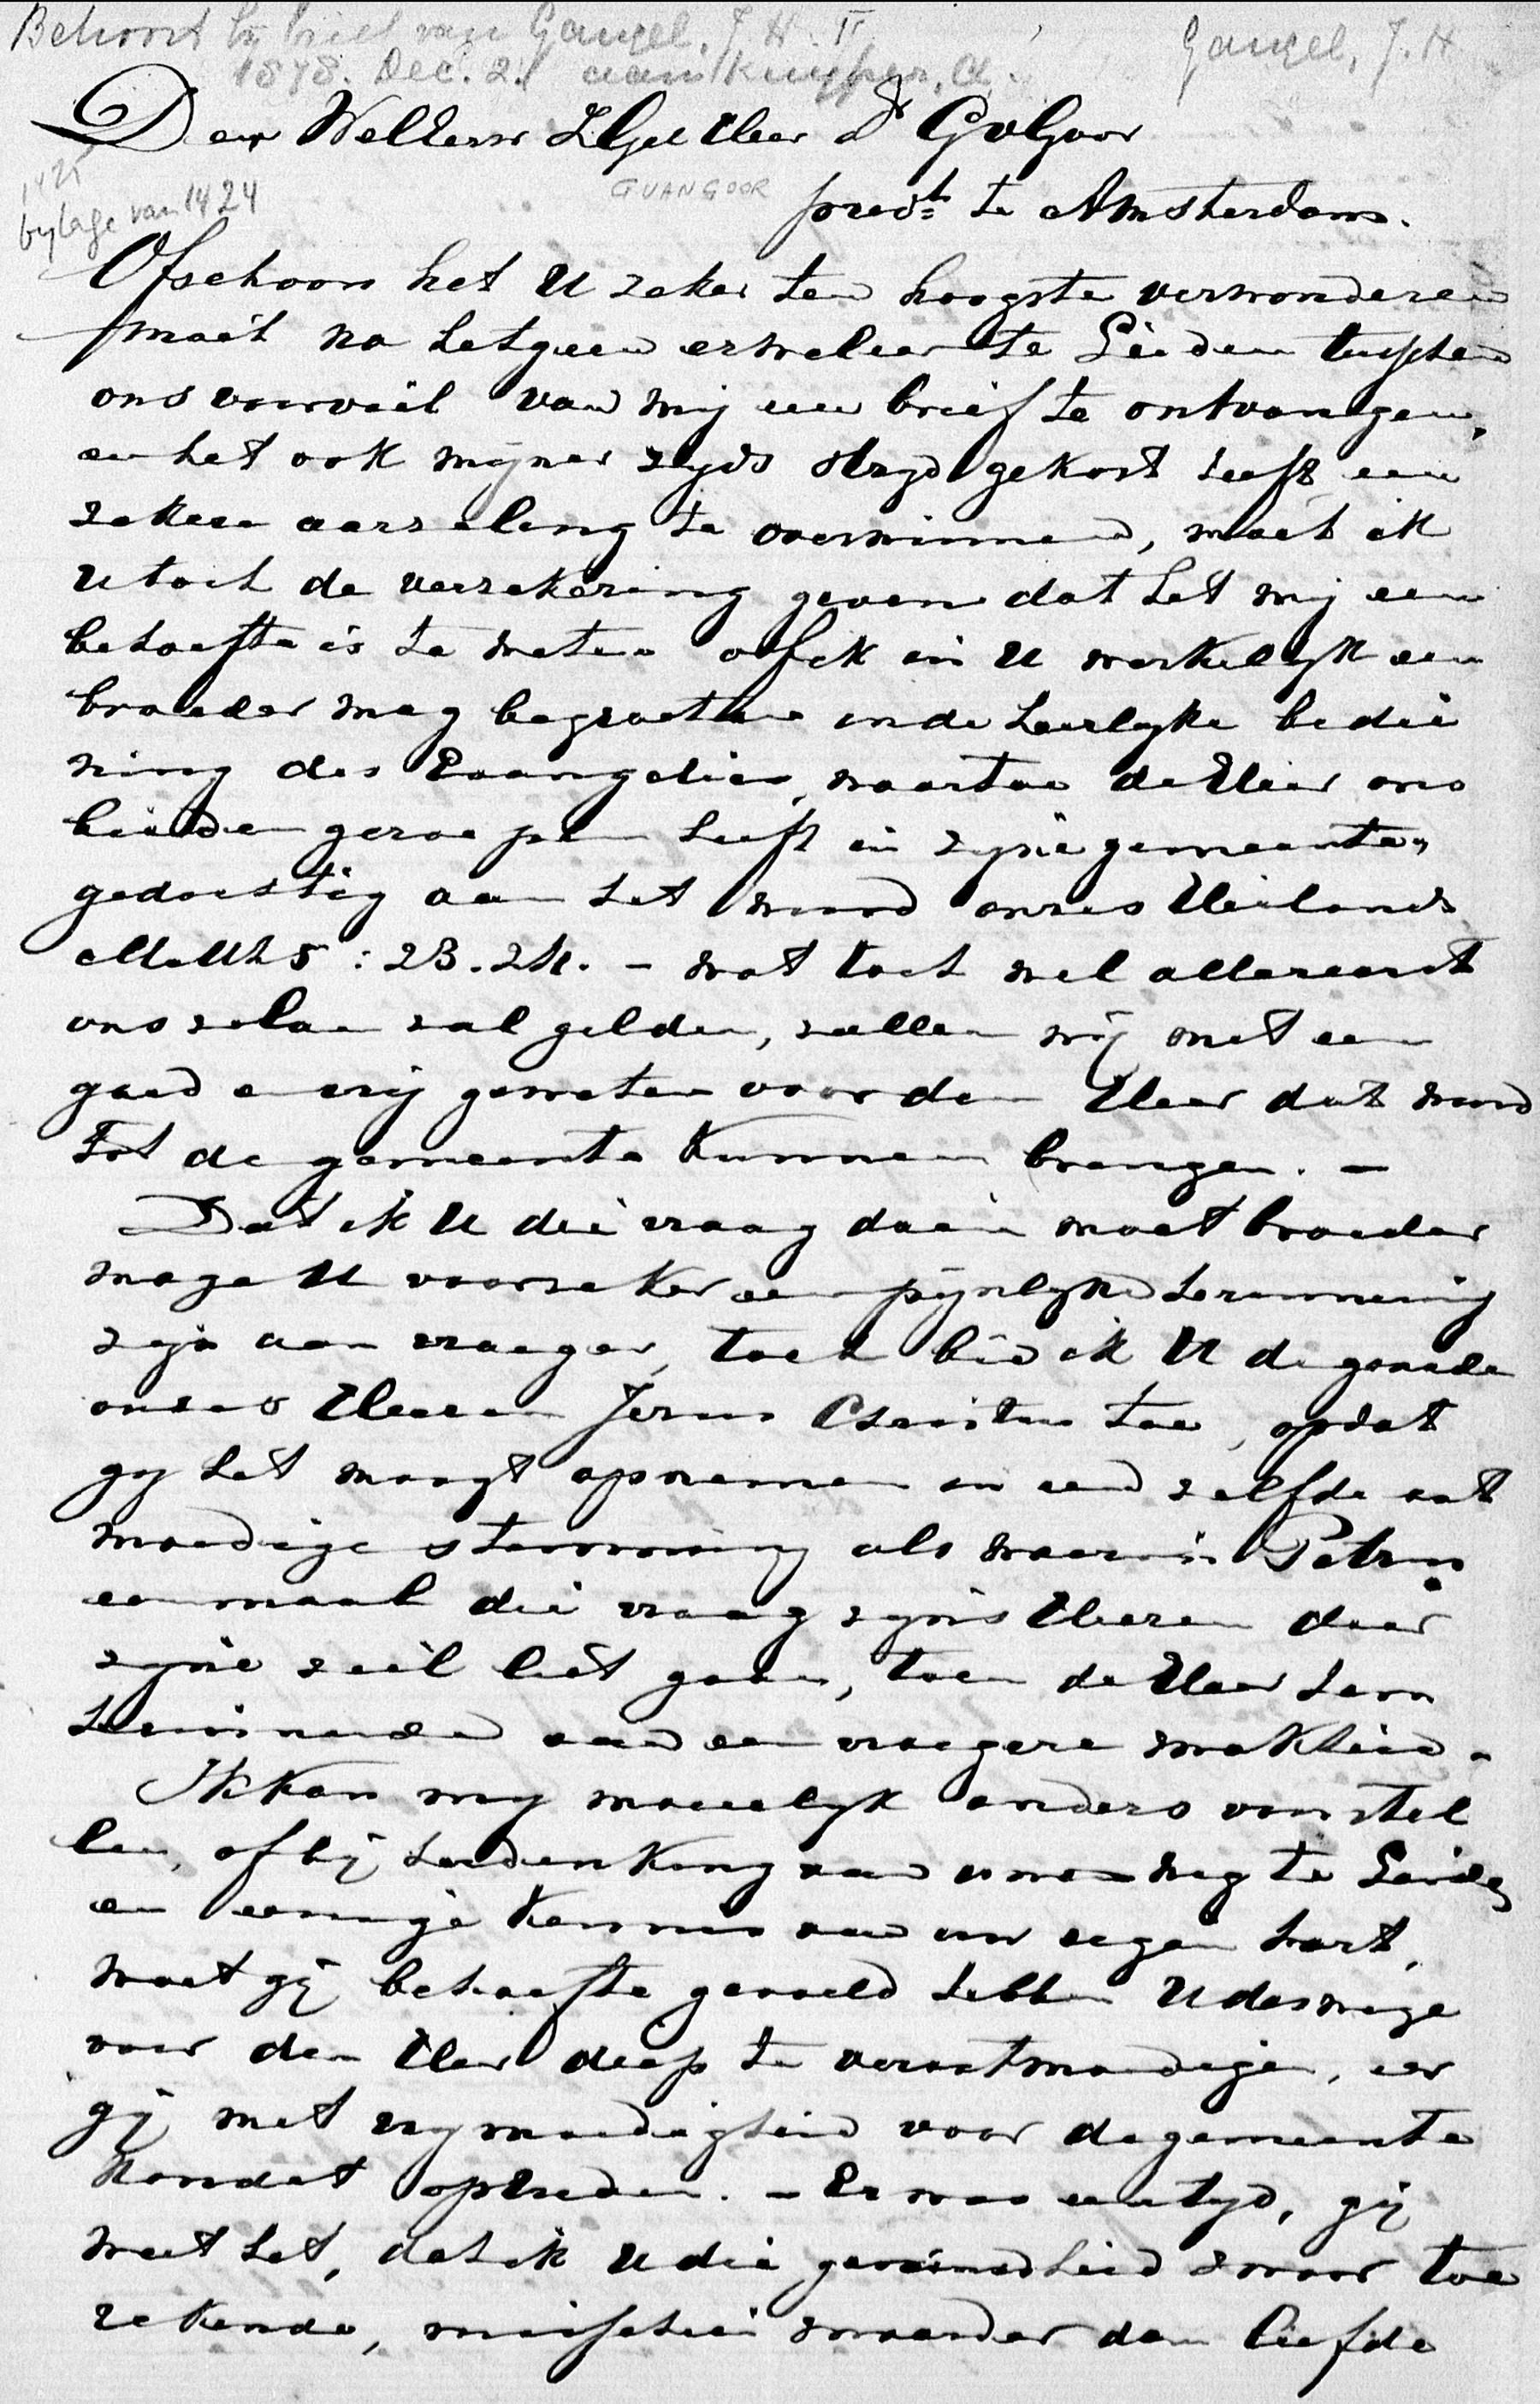 Behoort bij brief van Gangel, J. H. II
1878. Dec. 21 aan Kuyper, A.
Gangel, J. H
Den WelEerw ZGel Heer Dr GvGoor
G VAN GOOR
pred.t te Amsterdam.
1425
bijlage van 1424
Ofschoon het U zeker ten hoogste verwonderen
moet na hetgeen erweleer te Leiden tusschen
ons voorviel van mij een brief te ontvangen,
en het ook mijner zijds strijd gekost heeft een
zekere aarzeling te overwinnen, moet ik
U toch de verzekering geven dat het mij een
behoefte is te weten of ik in U werkelijk een
broeder mag begroeten in de heerlijke bedie
ning des Evangelies, waartoe de Heer ons
beiden geroepen heeft in zijne gemeente,
gedachtig aan het woord onzes Heilands
Matth 5 : 23. 24. – wat toch wel allereerst
ons zelven zal gelden, zullen wij met een
goed en vrij geweten voor den Heer dat woord
tot de gemeente kunnen brengen. –
Dat ik U die vraag doen moet broeder
moge U voorzeker een pijnlijke herinnering
zijn aan vroeger, toch bid ik U de genade
onzes Heeren Jezus Christus toe, opdat
gij het moogt opnemen in een zelfde oot
moedige stemming als waarin Petrus
eenmaal die vraag zijns Heeren door
zijne ziel liet gaan, toen de Heer hem
herinnerde aan een vroegere zwakheid.
Ik kan mij moeielijk anders voorstel
len, of bij herdenking aan uwen weg te Leiden
en eenige kennis aan uw eigen hart,
moet gij behoefte gevoeld hebben U deswege
voor den Heer diep te verootmoedigen, eer
gij met vrijmoedigheid voor de gemeente
kondet optreden. – Er was een tijd, gij
weet het, dat ik U die geveinsdheid zwaar toe
rekende, misschien zwaarder dan liefde